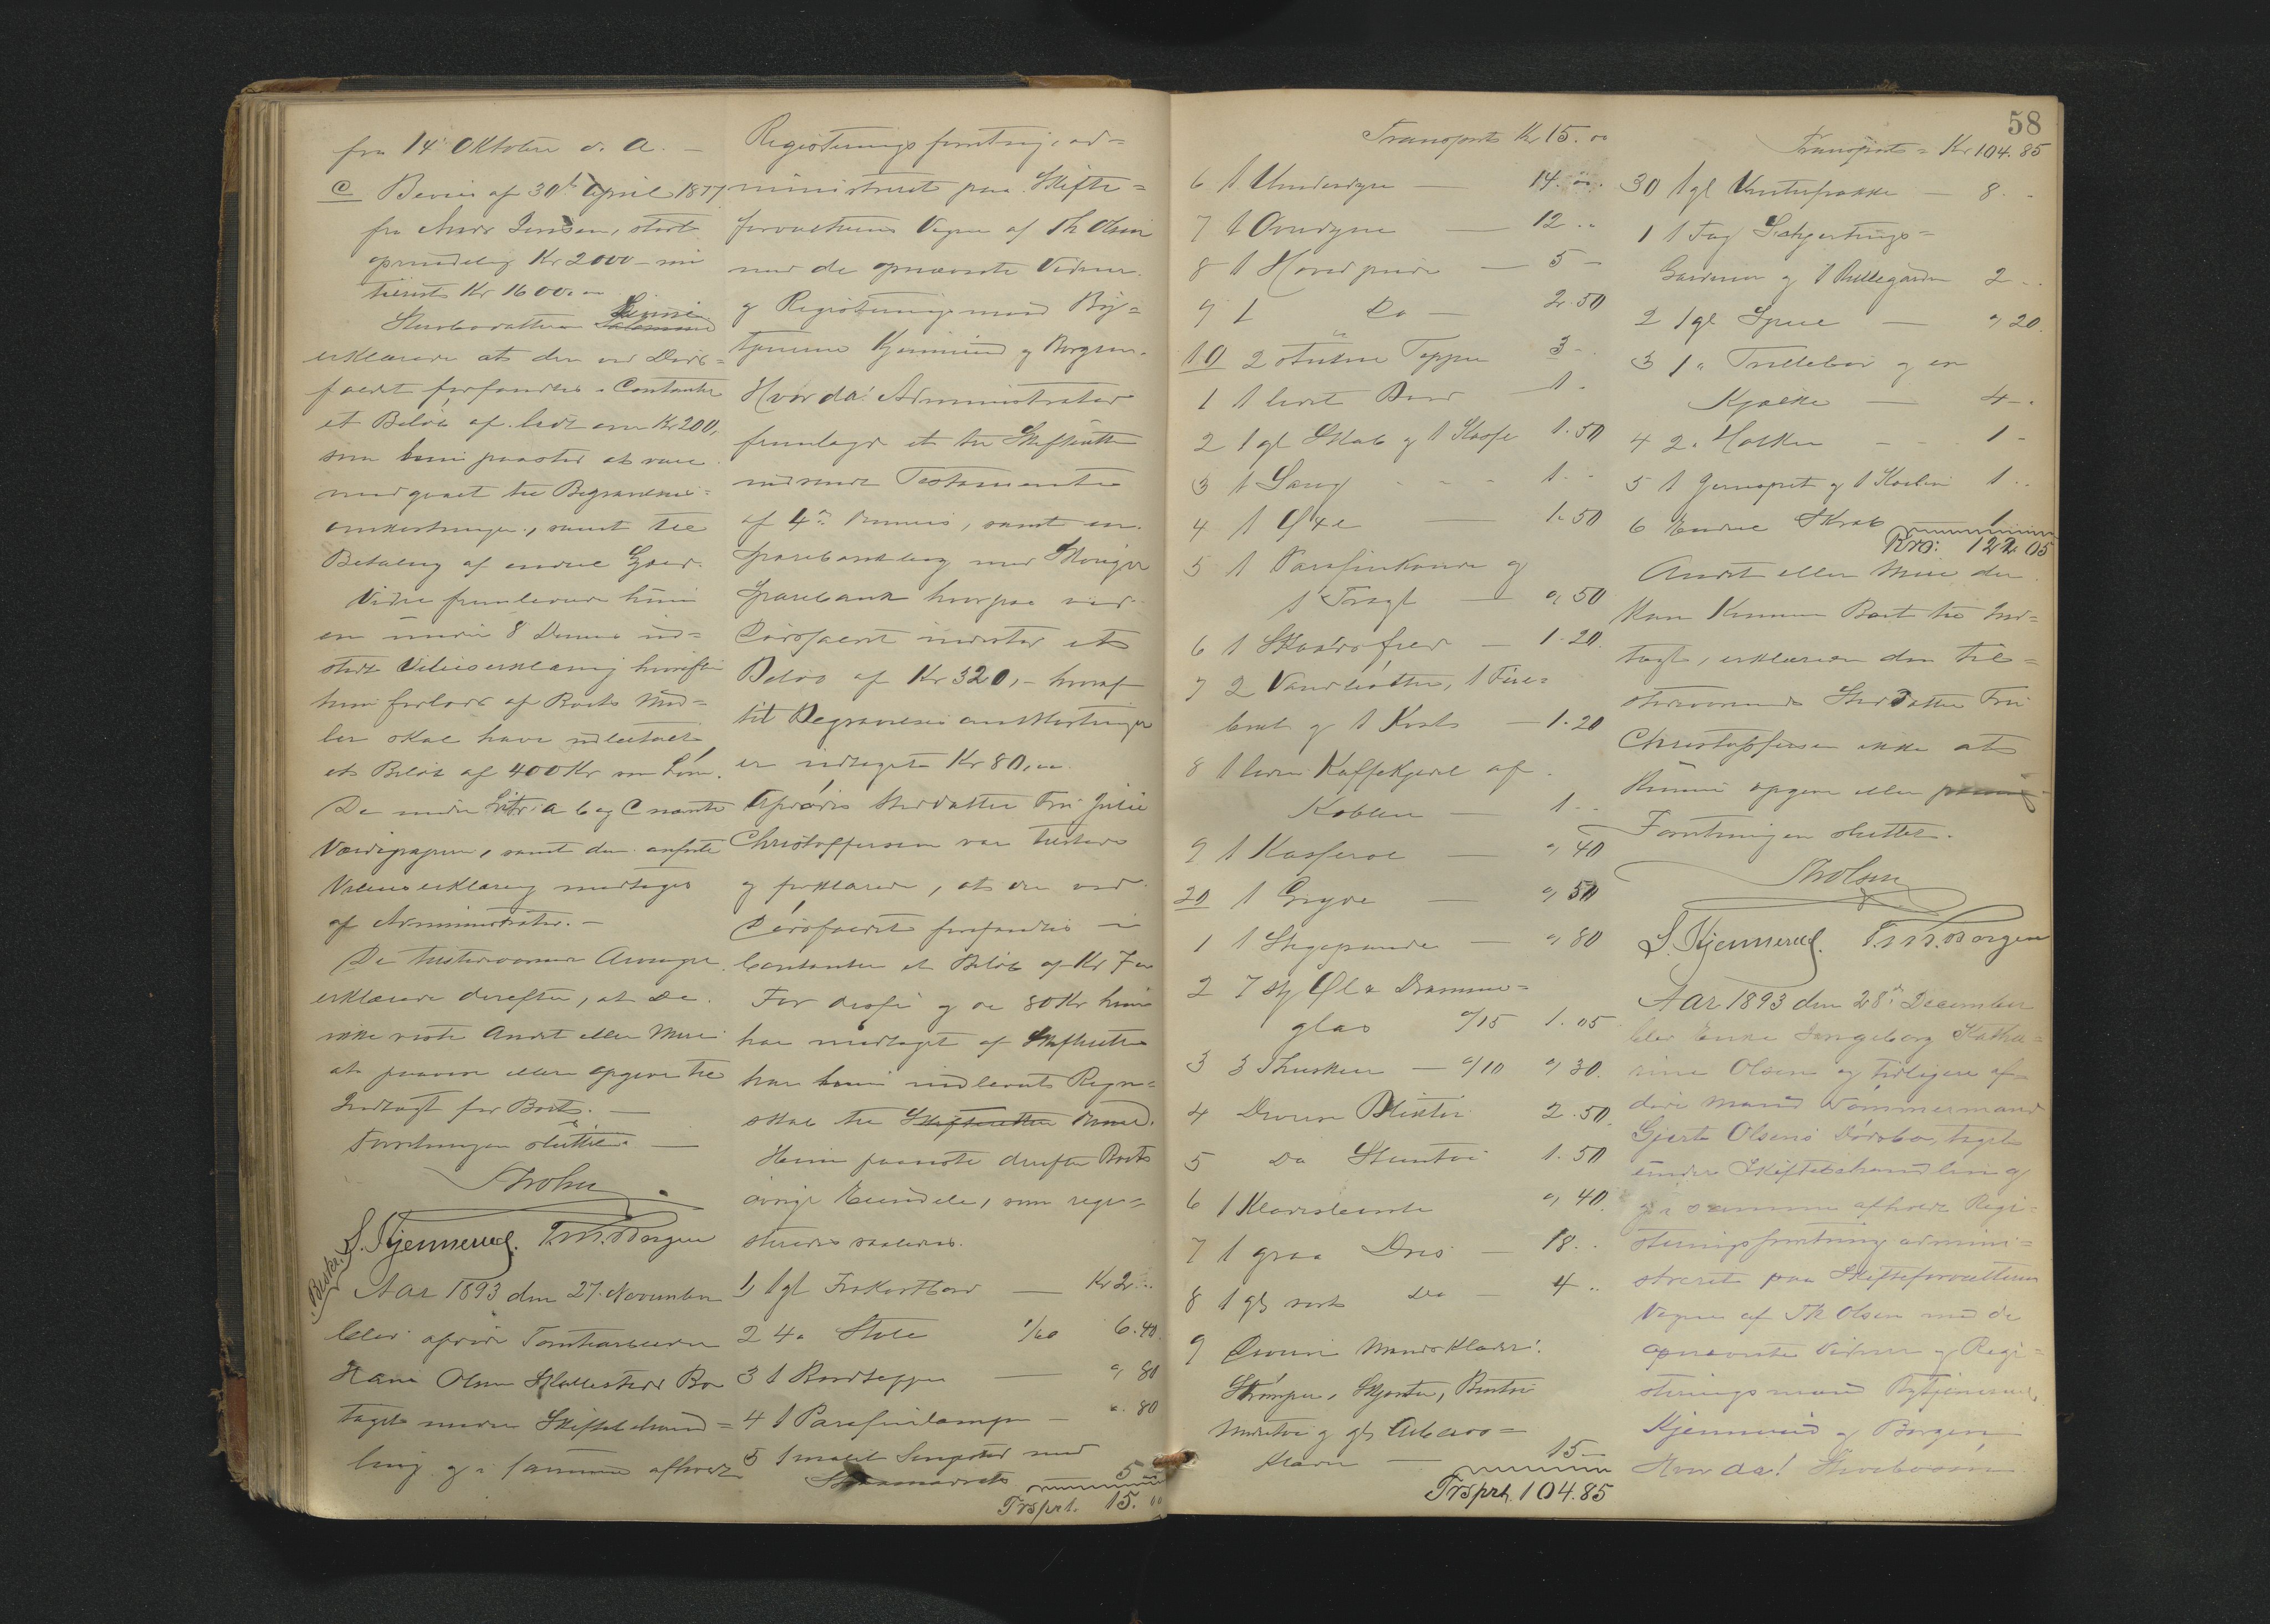 fra 14 Oktober d. A. –
C Bevis af 30te April 1877
fra Andr Jensen, stort
oprindelig Kr 2000 –
Kr 1600. –
Sterbodatteren
erklærede at der ved Døds=
faldet forfandtes i Contanter
et Beløb af lidt over Kr 200,
som hun paastod at være
medgaaet til Begravelses=
omkostninger, samt til
Betaling af endel Gjæld.
Videre fremleverede hun
en under 8 Dennes ud=
stedt Villieserklæring hvorefter
hun forlods af Boets Mid=
ler skal have udbetalt
et Beløb af 400 Kr som Løn.
De under Litr: a b og C nævnte
Værdipapirer, samt den anførte
Villieserklæring modtoges
af Administrator. –
De tilstedeværende Arvinger
erklærede derefter, at de
ikke vidste Andet eller Mere
at paavise eller opgive til
Indtægt for Boet. –
Forretningen sluttet. –
Th Olsen
S. Kjennerud. T. M. Borgen
Beskr.
Aar 1893 den 27. November
blev afdøde Tomtearbeider
Hans Olsen Bo
taget under Skiftebehand=
ling og i samme afholdt
Registreringsforretning, ad=
ministreret paa Skifte=
forvalterens Vegne af Th Olsen
med de opnævnte Vidner
og Registreringsmænd By=
tjenerne Kjennerud og Borgen.
Hvorda! Administrator
fremlagde et til Skifteretten
indsendt Testamente
af 4de Dennes, samt en
Sparebankbog med
Sparebank hvorpaa ved
Dødsfaldet indestod et
Beløb af Kr 320, – hvoraf
til Begravelses omkostninger
er udtaget Kr 80, –
Afdødes Steddatter Fru Julie
Christoffersen var tilstede
og forklarede, at der ved
Dødsfaldet forfandtes i
Contanter et Beløb af Kr 7 –
For disse og de 80 Kr hun
har modtaget af Skifteretten
har hun indleveret Regn=
skab til Skifteretten
Hun paaviste derefter Boets
øvrige Eiendele, som regi=
streredes saaledes.
1, 1 gl Bord — Kr 2 ..
2 4 " Stole 1/60 6.40
3 1 Bordteppe — " 80
4 1 Parafinlampe — " 80
5 1 malet Sengested med
5 –
Trsprt. 15. 00
Transport Kr 15. 00
6 1 Underdyne — 14. 00
7 1 Overdyne — 12 ..
8 1 Hovedpude — 5 –
9 1 Do — 2.50
10 2 Tepper 3 –
1 1 lidet Bord – 1 –
2 1 gl Skab og 1 1.50
3 1 Saug - - - 1 –
4 1 Øxe — 1.50
5 1 Parafinkande og
1 Tragt — " 50
6 1 — 1.20
7 2 Vandbøtter, 1
og 1 Kost — 1.20
8 1 liden Kaffekjedel af
Kobber — 1 –
9 1 Kasserol — " 40
20 1 Gryde — " 50
1 1 Stegepande — " 80
2 7 stk Øl & Dramme=
glas a/15 1.05
3 3 Skeer — a/10 " 30.
4 Diverse Bliktøi 2.50.
5 Do Stentøi 1.50
6 1 Klædesbørste " 40.
7 1 graa Dres — 18. .
8 1 gl sort Do — 4 ..
9 Diverse Mandsklæder:
Strømper, Skjorter,
og gl Arbeids=
klæder — 15 –
Trsprt. 104.85
58
Transport = Kr 104.85
30 1 gl Vinterfrakke — 8. -
1 1 Fag
Gardiner og 1 Rullegardin 2 - .
2 1 gl Speil — " 20.
3 1 " Trillebør og en
Kjælke — 4 – .
4 2 " Hakker – - 1 –
5 1 Jernspet og 1 1 . .
6 Endel Skrab 1
Kro: 122 05
Andet eller Mere der
kan komme Boet til Ind=
tægt, erklærede den til=
stedeværende Sted Datter Fru
Christoffersen ikke at
kunne opgive eller paavise
Forretningen sluttet.
Th Olsen
S. Kjennerud. T. M. Borgen
Aar 1893 den 28de December
blev Enke Ingeborg Katha=
rine Olsen og tidligere af=
døde Mand Tømmermand
Gjert Olsens Dødsbo, taget
under Skiftebehandling
og i samme afholdt Regi=
streringsforretning admini=
streret paa Skifteforvalterens
Vegne af Th Olsen med de
opnævnte Vidner og Regi=
streringsmænd Bytjenerne
Kjennerud og Borgen.
Hvorda!